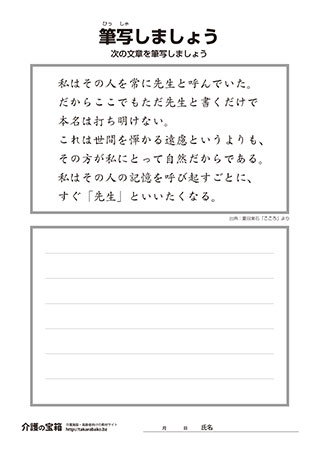 ひっ しゃ
筆写しましょう
次の文章を筆写しましょう
私はその人を常に先生と呼んでいた。
だからここでもただ先生と書くだけで
本名は打ち明けない。
これは世間を憚かる遠慮というよりも、
その方が私にとって自然だからである。
私はその人の記憶を呼び起すごとに、
すぐ「先生」といいたくなる。
出典:夏目漱石「こころ」より
介護の宝箱
介護施設・高齢者向けの素材サイト
http://takarabako.biz
月 日 氏名